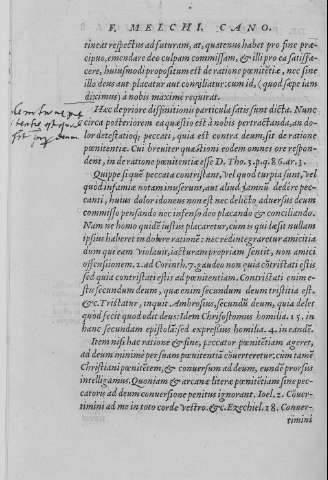 F. MELCHI. CANO.
tineat respectus ad futuram, at, quatenus habet pro fine præ-
cipuo, emendare deo culpam commissam, & illi pro ea satisfa-
cere, huiusmodi propositum est de ratione pœnitētiæ, nec sine
illo deus aut placatur aut conciliatur. cum id, (quod sæpe iam
diximus) à nobis maximè requirat.
Hæc de priore diffinitionis particula satis sunt dicta. Nunc
circa posteriorem ea quæstio est à nobis pertractanda, an do-
lor detestatioq; peccati, quia est contra deum, sit de ratione
pœnitētiæ. Cui breuiter quæstioni eodem omnes ore respon-
dent, in de ratione pœnitētiæ esse D. Tho. 3. p. q. 86. ar. 3.
Quippe si quē peccata contristant, vel quod turpia sunt, vel
quod infamiæ notam inuserunt, aut aliud damnū dedêre pec-
canti, huius dolor idoneus non est nec delicto aduersus deum
commisso pensando nec infenso deo placando & conciliando.
Nam ne homo quidē iustus placaretur, cum is qui læsit nullam
ipsius haberet in dolore rationē: nec redintegraretur amicitia
dum qui eam violauit, iacturam propriam sentit, non amici
offensionem. 2. ad Corinth. 7. gaudeo non quia cōtristati estis,
sed quia contristati estis ad pœnitentiam. Contristati enim e-
stis secundum deum, quæ enim secundum deum tristitia est.
&c. Tristatur, inquit Ambrosius, secundū deum, quia delet
quod fecit quod odit deus: Idem Chrysostomus homilia. 15. in
hanc secundam epistolā: sed expressius homilia. 4. in eandē.
Item nisi hac ratione & fine, peccator pœnitētiam ageret,
ad deum minimè per suam pœnitentiā cōuerteretur, cum tamē
Christiani pœnitētem, & conuersum ad deum, eundē prorsus
intelligamus. Quoniam & arcanæ literæ pœnitētiam sine pec-
catoris ad deum conuersione penitus ignorant. Ioel. 2. Cōuer-
timini ad me in toto corde vestro. &c. Ezechiel. 18. Conuer-
timini